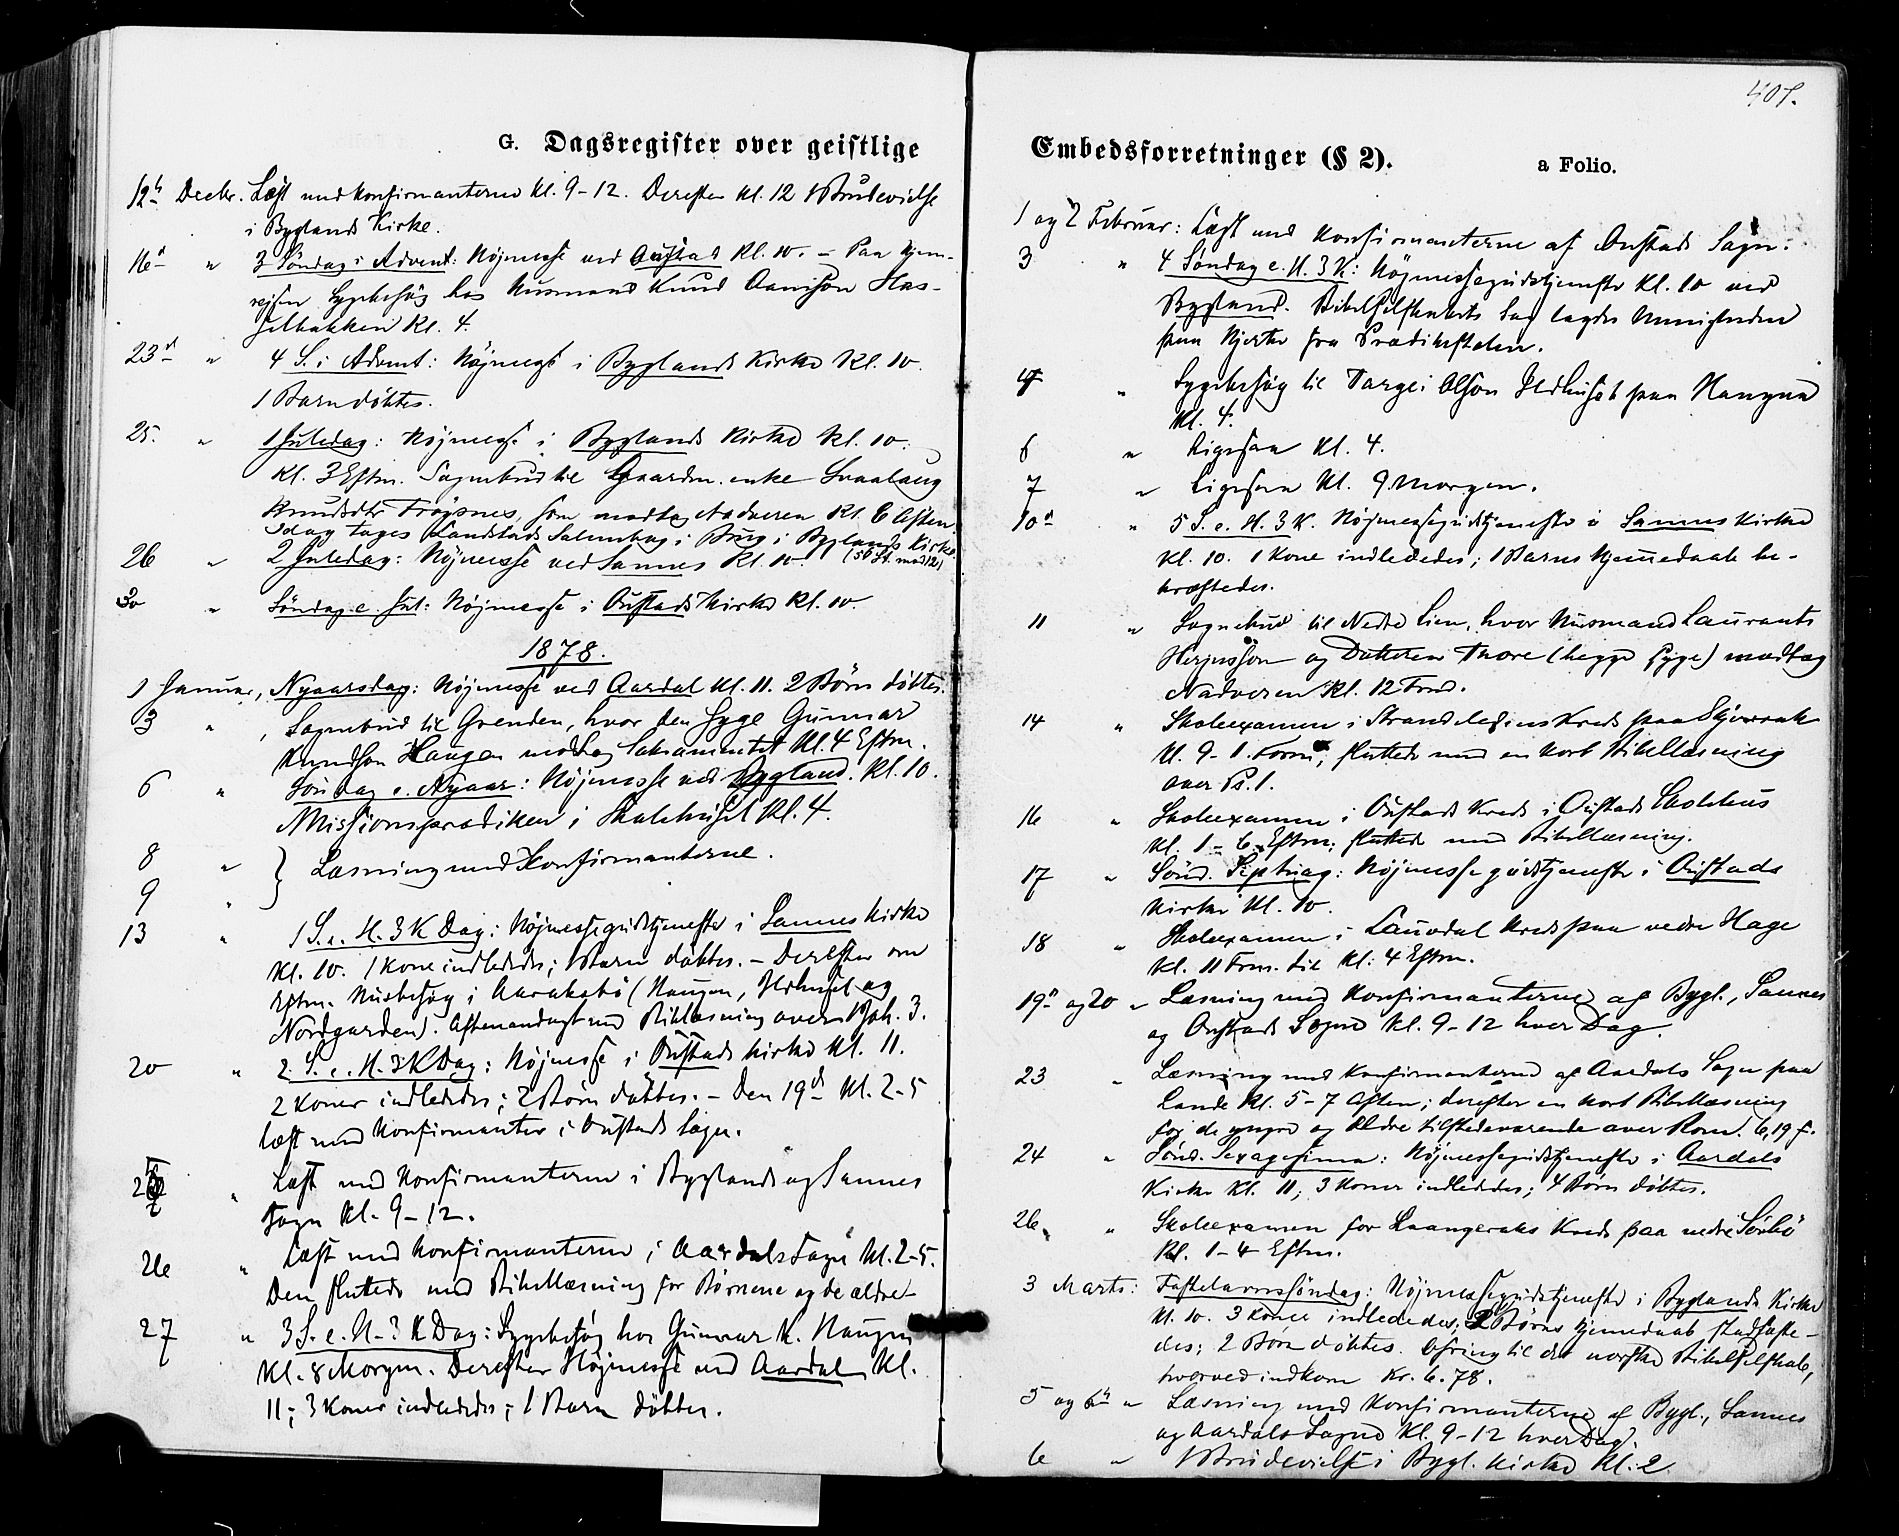 G. Dagsregister over geistlige
12te Decbr. Læst med Konfirmanterne Kl. 9-12. Derefter Kl. 12 1 Brudevielse
i Byglands Kirke.
16de " 3 Söndag i Advent: Höjmesse ved Austad Kl. 10. – Paa Hjem-
rejsen Sygebesög hos Husmand Knud Aanisön Has-
selbakken Kl. 4.
23de " 4 S. i Advent: Höjmesse i Byglands Kirke Kl. 10.
1 Barn döbtes.
25. " 1 Juledag: Höjmesse i Byglands Kirke Kl. 10.
Kl. 3 Eftm. Sognebud til Gaardm. enke Svaalaug
Knudsdtr Fröysnes, som modtog Nadveren Kl. 6 Aften
Idag toges Landstads Salmebog i Brug i Byglands Kirke.
26 " 2 Juledag: Höjmesse ved Sannes Kl. 10.
30 " Söndag e. Jul: Höjmesse i Oustads Kirke Kl. 10.
1878.
1 Januar, Nyaarsdag: Höjmesse ved Aardal Kl. 11. 2 Börn döbtes.
3 " , Sognebud til Grenden, hvor den syge Gunnar
Knudsön Haugen modtog Sakramentet Kl. 4 Eftm.
6 " Söndag e. Nyaar: Höjmesse ved Bygland. Kl. 10.
Missionsprædiken i Skolehuset Kl. 4.
8 " } Læsning med Konfirmanterne.
9 "
13 " 1 S. e. H. 3 K Dag: Höjmessegudstjeneste i Sannes Kirke
Kl. 10. 1 Kone indlededes; 1 Barn döbtes. – Derefter om
Eftm. Husbesög i Aarakstö (Haugen, Ildhuset og
Nordgarden). Aftenandagt med Bibellæsning over 1 Joh. 3.
20 " 2. S. e. H. 3 K Dag: Höjmesse i Oustads Kirke Kl. 11.
2 Koner indlededes; 2 Börn döbtes. – Den 19de Kl. 2-5
læst med Konfirmanter i Oustads Sogn.
" Læst med Konfirmanterne i Byglands og Sannes
Sogn Kl. 9-12.
26 " Læst med Konfirmanterne i Aardals Sogn Kl. 2-5.
Den sluttede med Bibellæsning for Börnene og de ældre
27 " 3 S. e. H. 3 K Dag: Sygebesög hos Gunnar K. Haugen
Kl. 8 Morgen. Derefter Höjmesse ved Aardal Kl.
11; 3 Koner indlededes; 1 Barn döbtes.
401.
Embedsforretninger (§ 2). a Folio.
1 og 2 Februar: Læst med Konfirmanterne af Oustads Sogn.
3 " 4 Söndag e. H. 3 K: Höjmessegudstjeneste Kl. 10 ved
Bygland. Bibelselskabets Sag lagdes Menigheden
paa Hjerte fra Prædikestolen.
4 " Sygebesög til Targei Olsön Ildhuset paa Haugen
Kl. 4.
6 " Ligesaa Kl. 4.
7 " Ligesaa Kl. 9 Morgen.
10de " 5 S. e. H. 3 K. Höjmessegudstjeneste i Sannes Kirke
Kl. 10. 1 Kone indlededes; 1 Barns Hjemmedaab be-
kræftedes.
11 " Sognebud til Nedre Lien, hvor Husmand Laurants
Herjussön og Datteren Thore (begge syge) modtog
Nadveren Kl. 12 Fmd.
14 " Skoleexamen i Strandelejens Kreds paa Skjevrak
Kl. 9-1 Form; sluttede med en kort Bibellæsning
over Ps. 1.
16 " Skoleexamen i Oustads Kreds i Oustads Skolehus
Kl. 1-6 Eftm; sluttede med Bibellæsning.
17 " Sönd. Septuag: Höjmessegudstjeneste i Oustads
Kirke Kl. 10.
18 " Skoleexamen i Lauvdal Kreds paa nedre Hage
Kl. 11 Frm. til Kl. 4 Eftm.
19de og 20 " Læsning med Konfirmanterne af Bygl., Sannes
og Oustads Sogne Kl. 9-12 hver Dag.
23 " Læsning med Konfirmanterne af Aardals Sogn paa
Lande Kl. 5-7 Aften; derefter en kort Bibellæsning
for de yngre og ældre tilstedeværende over Rom. 6,19 f.
24 " Sönd. Sexagesima: Höjmessegudstjeneste i Aardals
Kirke Kl. 11; 3 Koner indlededes; 4 Börn döbtes.
26 " Skoleexamen for Laangeraks Kreds paa nedre Sörbö
Kl. 1-4 Eftm.
3 Marts: Fastelavnssöndag: Höjmessegudstjeneste i Byglands Kirke
Kl. 10. 3 Koner indlededes; 2 Börns Hjemmedaab stadfæste-
des; 2 Börn döbtes. Ofring til det norske Bibelselskab,
hvorved indkom Kr. 6.78.
5 og 6te " Læsning med Konfirmanterne af Bygl., Sannes
og Aardals Sogne Kl. 9-12 hver Dag.
6 " 1 Brudevielse i Bygl. Kirke Kl. 2.